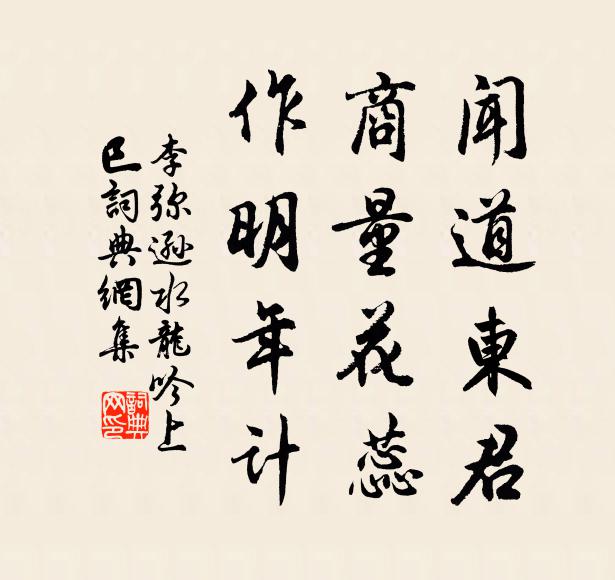 闻道東君
商量花蕊
作明年計
李弥遜水龍吟上
巳詞典網集
詞典网印